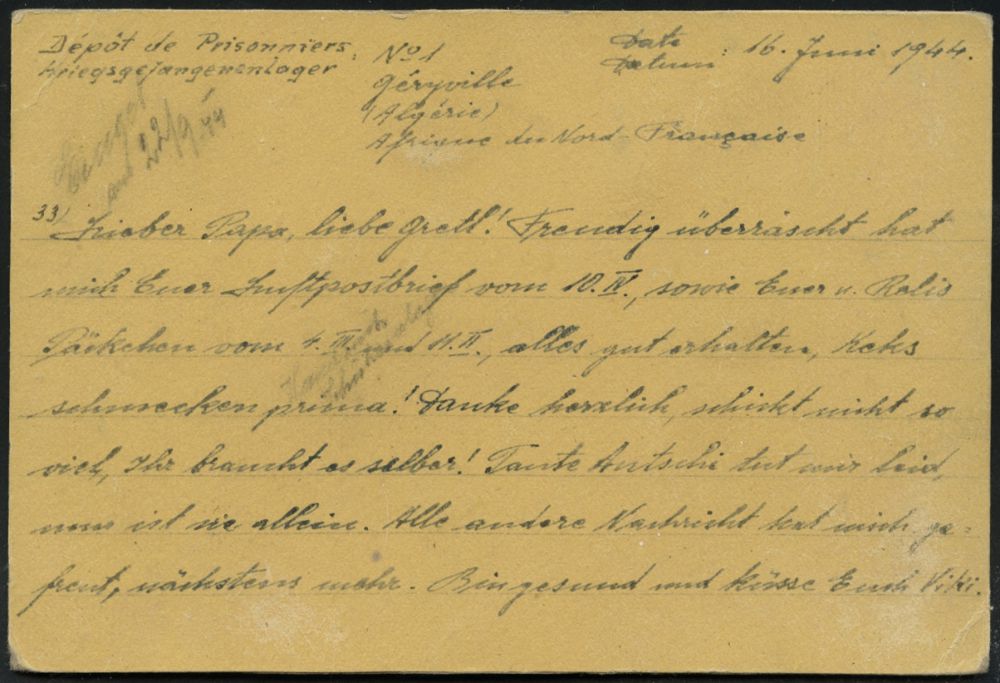 Dépôt de Prisonniers
Kriegsgefangenenlager : No 1
Géryville
(Algérie)
Afrique du Nord - Française
Date
Datum : 16. Juni 1944.
am 22/9 44
33) Lieber Papa, liebe Gretl! Freudig überrascht hat
mich Euer Luftpostbrief vom 10. IV., sowie Euer u. Ralis
Päckchen vom 4. III. und 11. II., alles gut erhalten, Keks
schmecken prima! Danke herzlich, schickt nicht so
viel, Ihr braucht es selber! Tante tut mir leid,
nun ist sie allein. Alle andere Nachricht hat mich ge-
freut, nächstens mehr. Bin gesund und küsse Euch Viki.